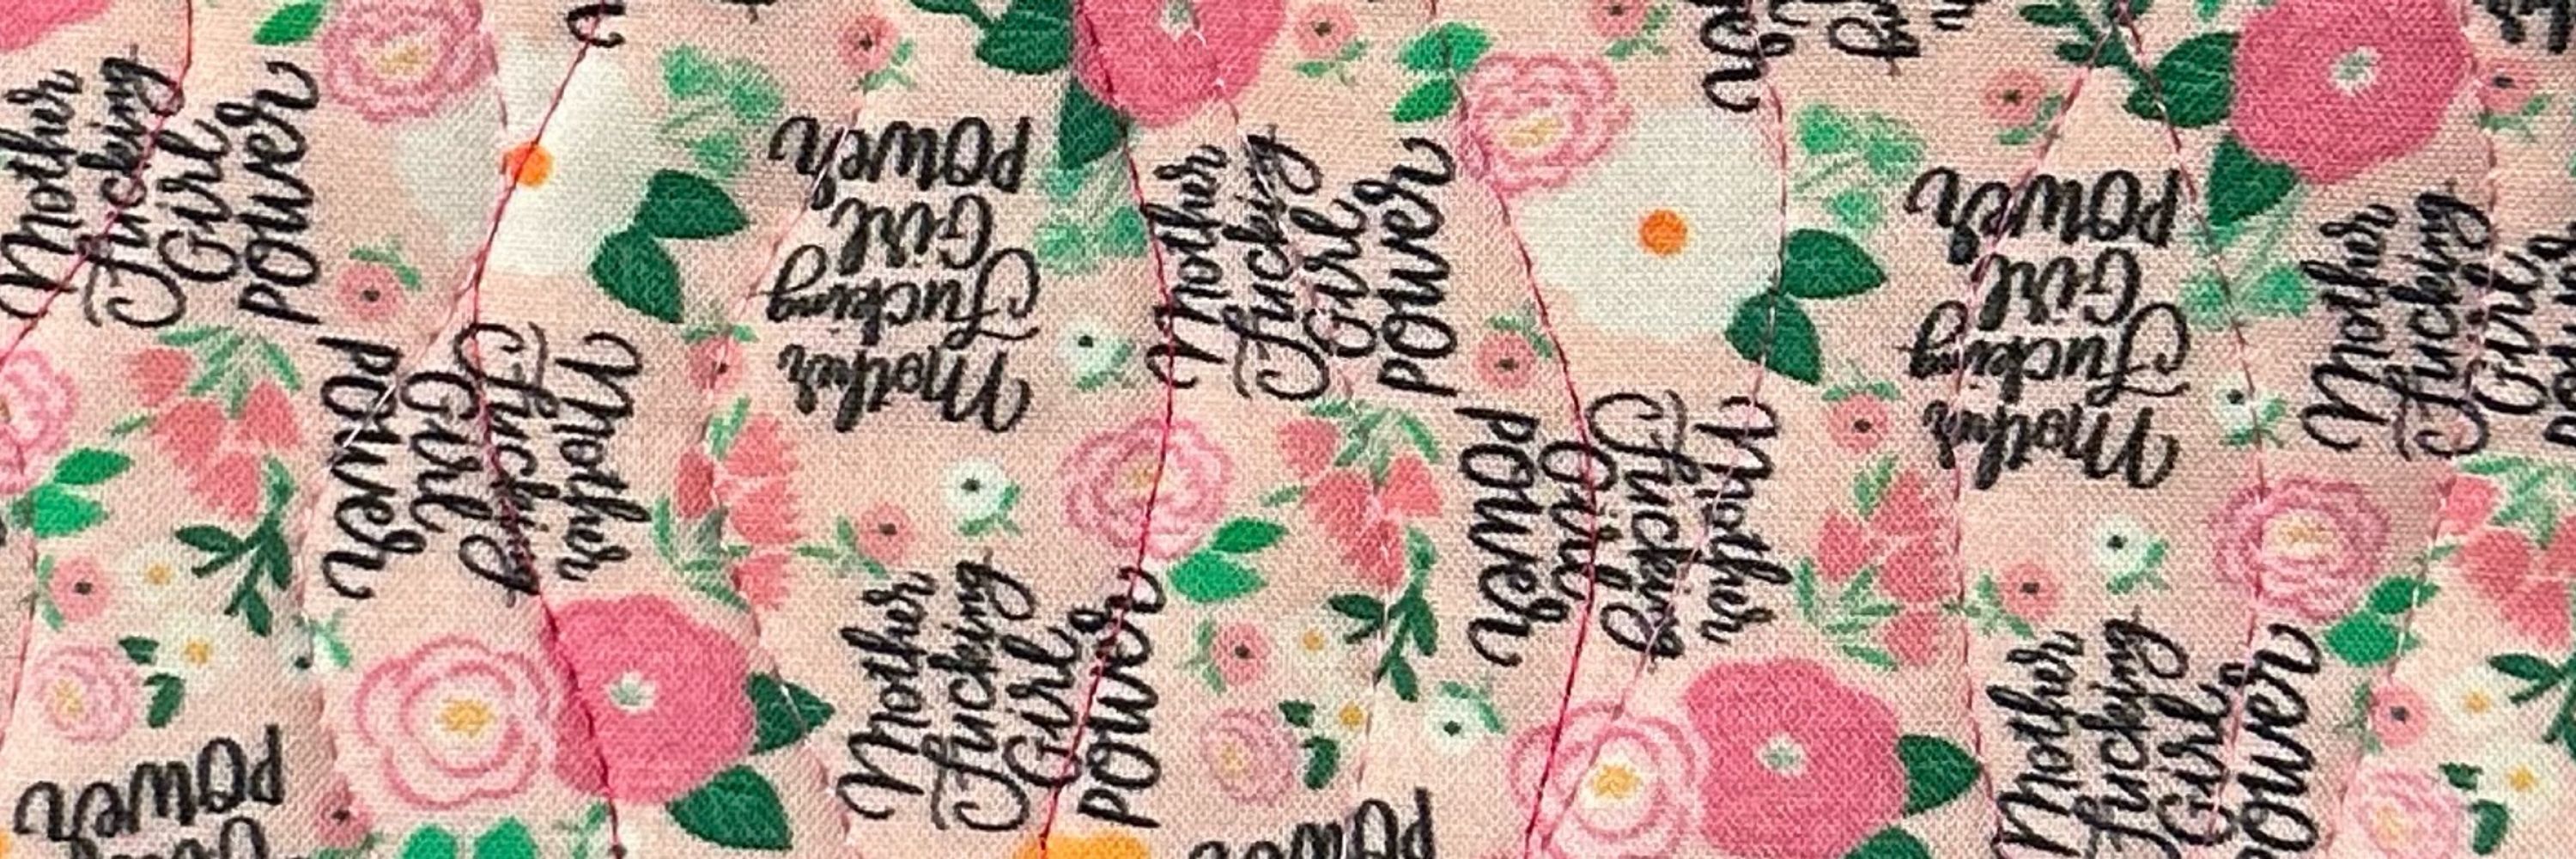 Mother
Fucking
Girl
Power
Power
Girl
Fucking
Mother
Mother
Fucking
Girl
Power
Power
Girl
Fucking
Mother
Mother
Fucking
Girl
Power
Mother
Fucking
Girl
Power
Mother
Fucking
Girl
Power
Mother
Fucking
Girl
Power
Mother
Fucking
Girl
Power
Power
Power